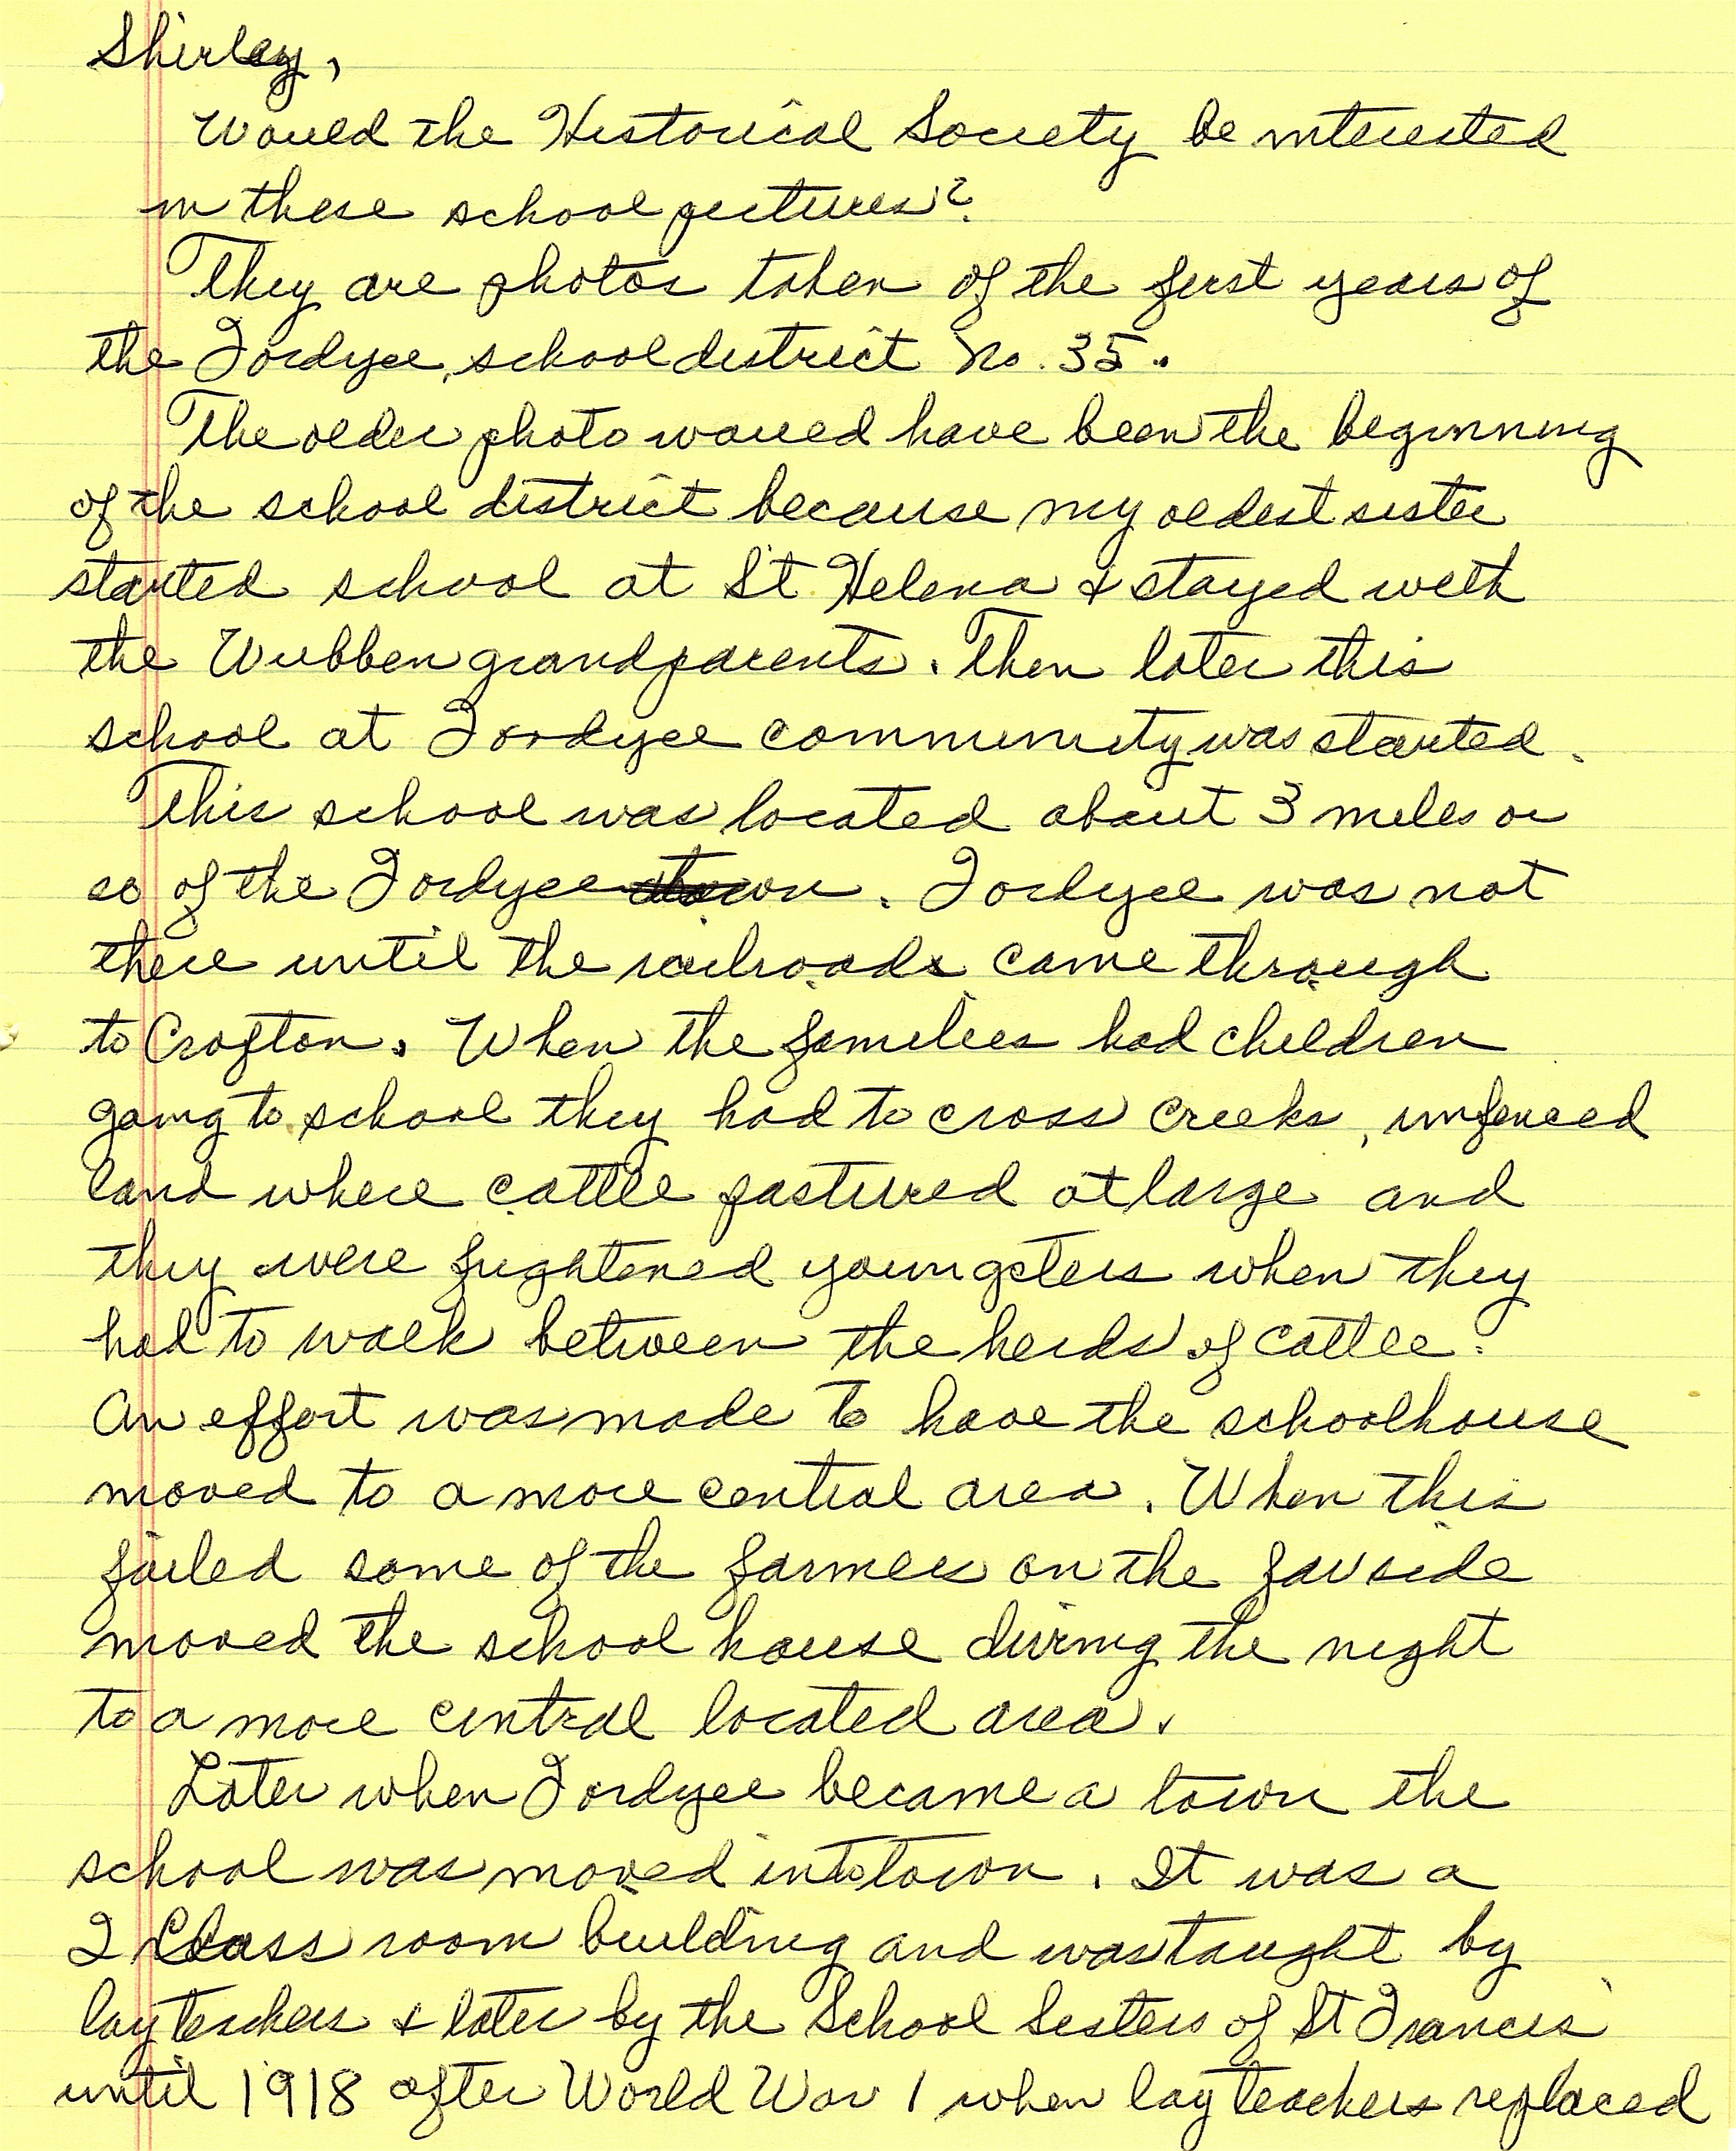 Shirley,
Would the Historical Society be interested
in these school pictures?
They are photos taken of the first years of
the Fordyce, school district No. 35.
The older photo would have been the beginning
of the school district because my oldest sister
started school at St. Helena & stayed with
the Wubben grandparents. Then later this
school at Fordyce community was started.
This school was located about 3 miles or
so of the Fordyce town. Fordyce was not
there until the railroads came through
to Crofton. When the families had children
going to school they had to cross creeks, unfenced
land where cattle pastured at large and
they were frightened youngsters when they
had to walk between the herds of cattle.
An effort was made to have the schoolhouse
moved to a more central area. When this
failed some of the farmers on the far side
moved the school house during the night
to a more central located area.
Later when Fordyce became a town the
school was moved into town. It was a
2 Class room building and was taught by
lay teachers & later by the School Sisters of St Francis
until 1918 after World War 1 when lay teachers replaced